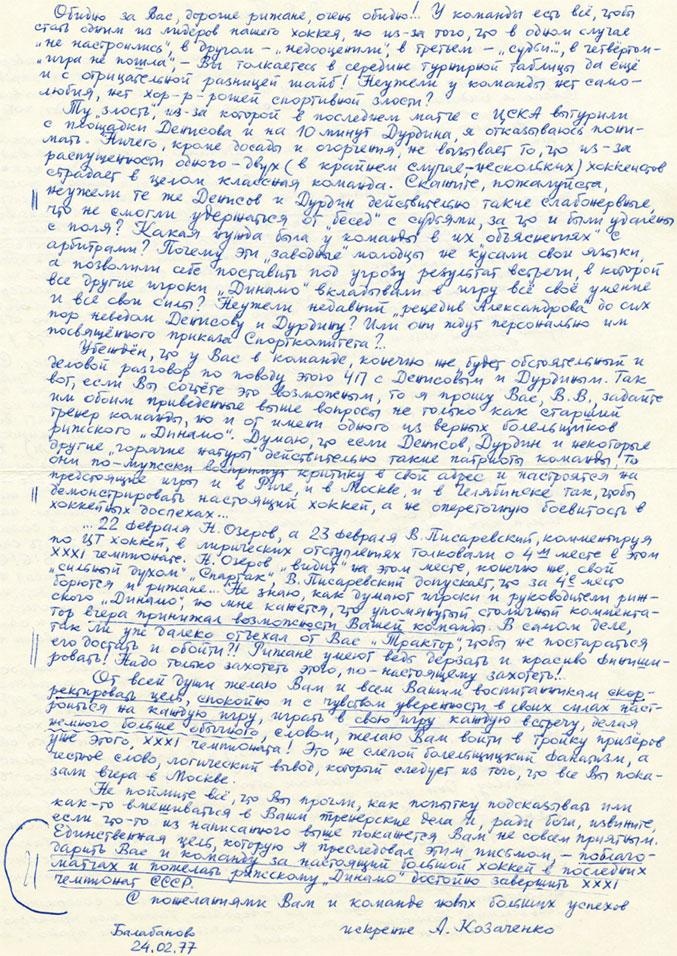 Обидно за Вас, дорогие рижане, очень обидно!.. У команды есть всё, чтобы
стать одним из лидеров нашего хоккея, но из-за того, что в одном случае
„не настроились", в другом – „недооценили", в третьем – „судьи"..., в четвёртом –
„игра не пошла", – Вы толкаетесь в середине турнирной таблицы да ещё
и с отрицательной разницей шайб! Неужели у команды нет само-
любия, нет хор-р-рошей спортивной злости?
Ту „злость", из-за которой в последнем матче с ЦСКА вытурили
с площадки Денисова и на 10 минут Дурдина, я отказываюсь пони-
мать. Ничего, кроме досады и огорчения, не вызывает то, что из-за
распущенности одного-двух (в крайнем случае – нескольких) хоккеистов
страдает в целом классная команда. Скажите, пожалуйста,
неужели те же Денисов и Дурдин действительно такие слабонервные,
что не смогли удержаться от „бесед" с судьями, за что и были удалены
с поля? Какая нужда была у команды в их „объяснениях" с
арбитрами? Почему эти „заводные" молодцы не кусали свои языки,
а позволили себе поставить под угрозу результат встречи, в которой
все другие игроки „Динамо" вкладывали в игру всё своё умение
и все свои силы? Неужели недавний „рецедив Александрова" до сих
пор неведом Денисову и Дурдину? Или они ждут персонально им
посвящённого приказа Спорткомитета?..
Убеждён, что у Вас в команде, конечно же, будет обстоятельный и
деловой разговор по поводу этого ЧП с Денисовым и Дурдиным. Так
вот, если Вы сочтёте это возможным, то я прошу Вас, В.В., задайте
им обоим приведенные выше вопросы не только как старший
тренер команды, но и от имени одного из верных болельщиков
рижского „Динамо". Думаю, что если Денисов, Дурдин и некоторые
другие „горячие натуры" действительно такие патриоты команды, то
они по-мужски воспримут критику в свой адрес и настроятся на
предстоящие игры и в Риге, и в Москве, и в Челябинске так, чтобы
демонстрировать настоящий хоккей, а не опереточную боевитость в
хоккейных доспехах...
... 22 февраля Н. Озеров, а 23 февраля В. Писаревский, комментируя
по ЦТ хоккей, в лирических отступлениях толковали о 4ом месте в этом
XXXI чемпионате. Н. Озеров „видит" на этом месте, конечно же, свой
„сильный духом" „Спартак". В. Писаревский допускает, что за 4е место
борются и рижане... Не знаю, как думают игроки и руководители риж-
ского „Динамо", но мне кажется, что упомянутый столичный коммента-
тор вчера принижал возможности Вашей команды. В самом деле,
так ли уж далеко отъехал от Вас „Трактор", чтобы не постараться
его достать и обойти?! Рижане умеют ведь дерзать и красиво финиши-
ровать! Надо только захотеть этого, по-настоящему захотеть!..
От всей души желаю Вам и всем Вашим воспитанникам скор-
ректировать цель, спокойно и с чувством уверенности в своих силах наст-
роиться на каждую игру, играть в свою игру каждую встречу, делая
немного больше обычного, словом, желаю Вам войти в тройку призёров
уже этого, XXXI чемпионата! Это не слепой болельщицкий фанатизм, а
честное слово, логический вывод, который следует из того, что все Вы пока-
зали вчера в Москве.
Не поймите всё, что Вы прочли, как попытку подсказывать или
как-то вмешиваться в Ваши тренерские дела и, ради бога, извините,
если что-то из написанного выше покажется Вам не совсем приятным.
Единственная цель, которую я преследовал этим письмом, – поблаго-
дарить Вас и команду за настоящий большой хоккей в последних
матчах и пожелать рижскому „Динамо" достойно завершить XXXI
чемпионат СССР.
С пожеланиями Вам и команде новых больших успехов
искренне А. Козаченко
Балабаново
24.02.77